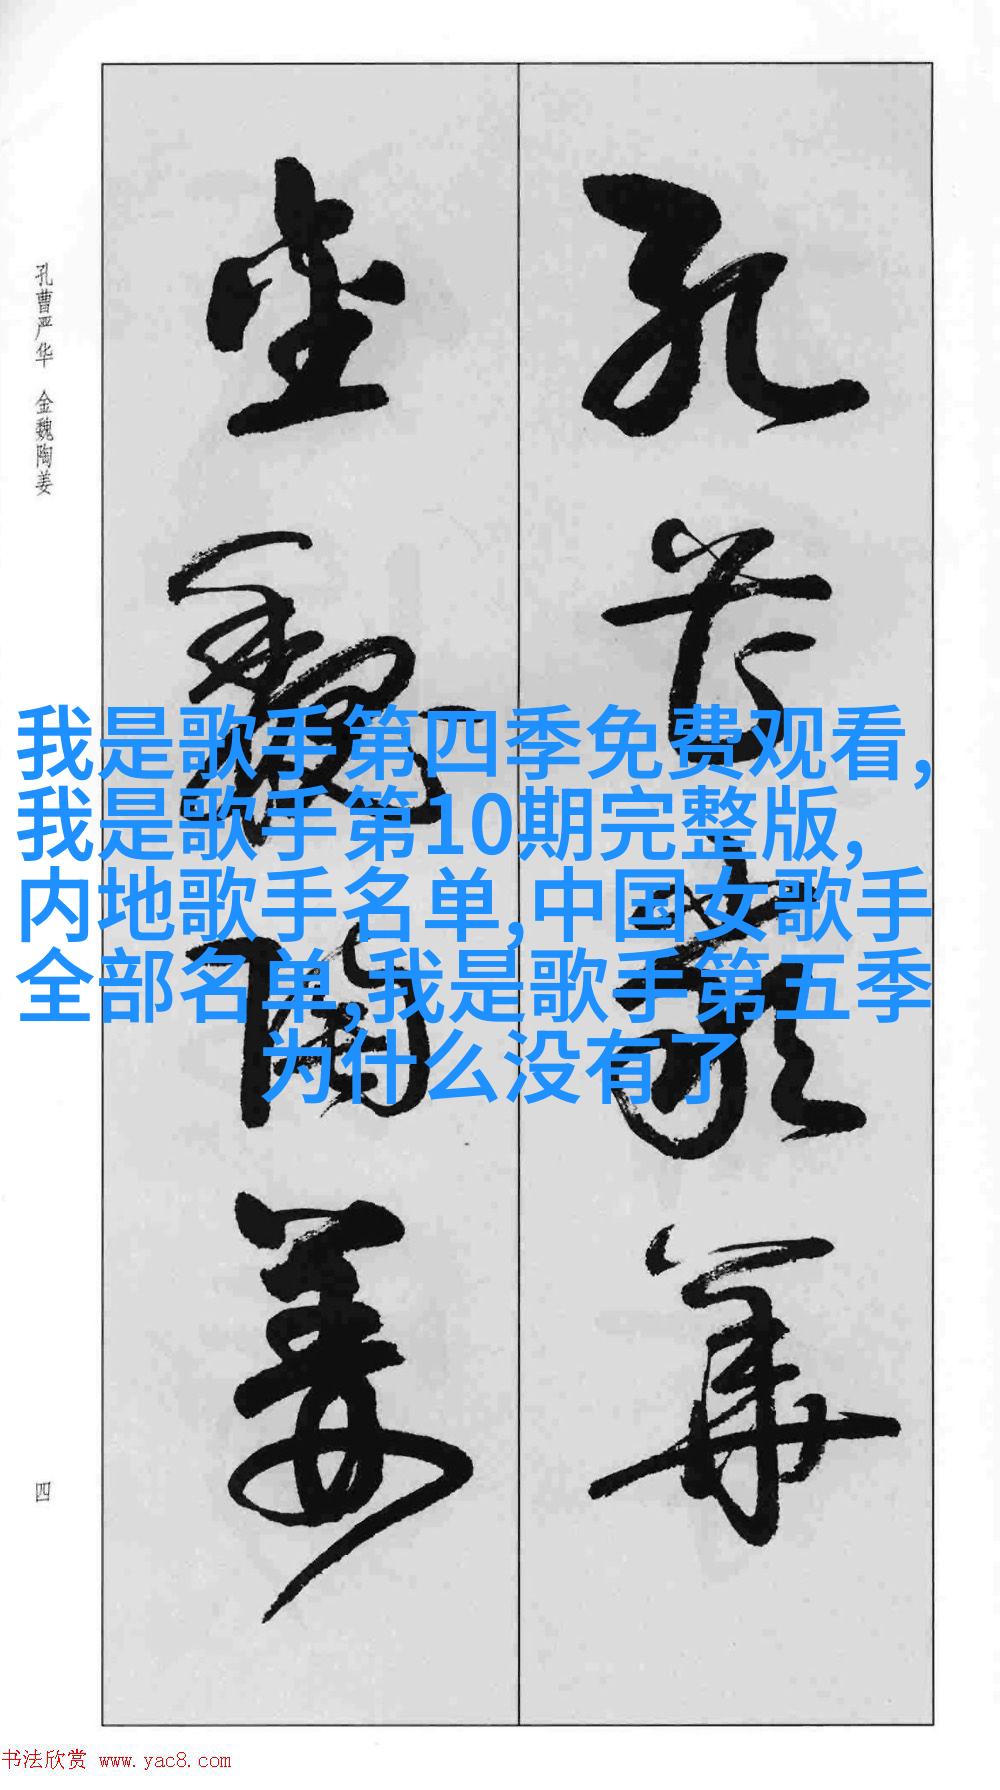 孔曹严华
金魏陶姜
孔曹严华 金魏陶姜
四
我是歌手第四季免费观看,
我是歌手第10期完整版,
内地歌手名单,中国女歌手
全部名单,我是歌手第五季
为什么没有了
书法欣赏 www.yac8.com